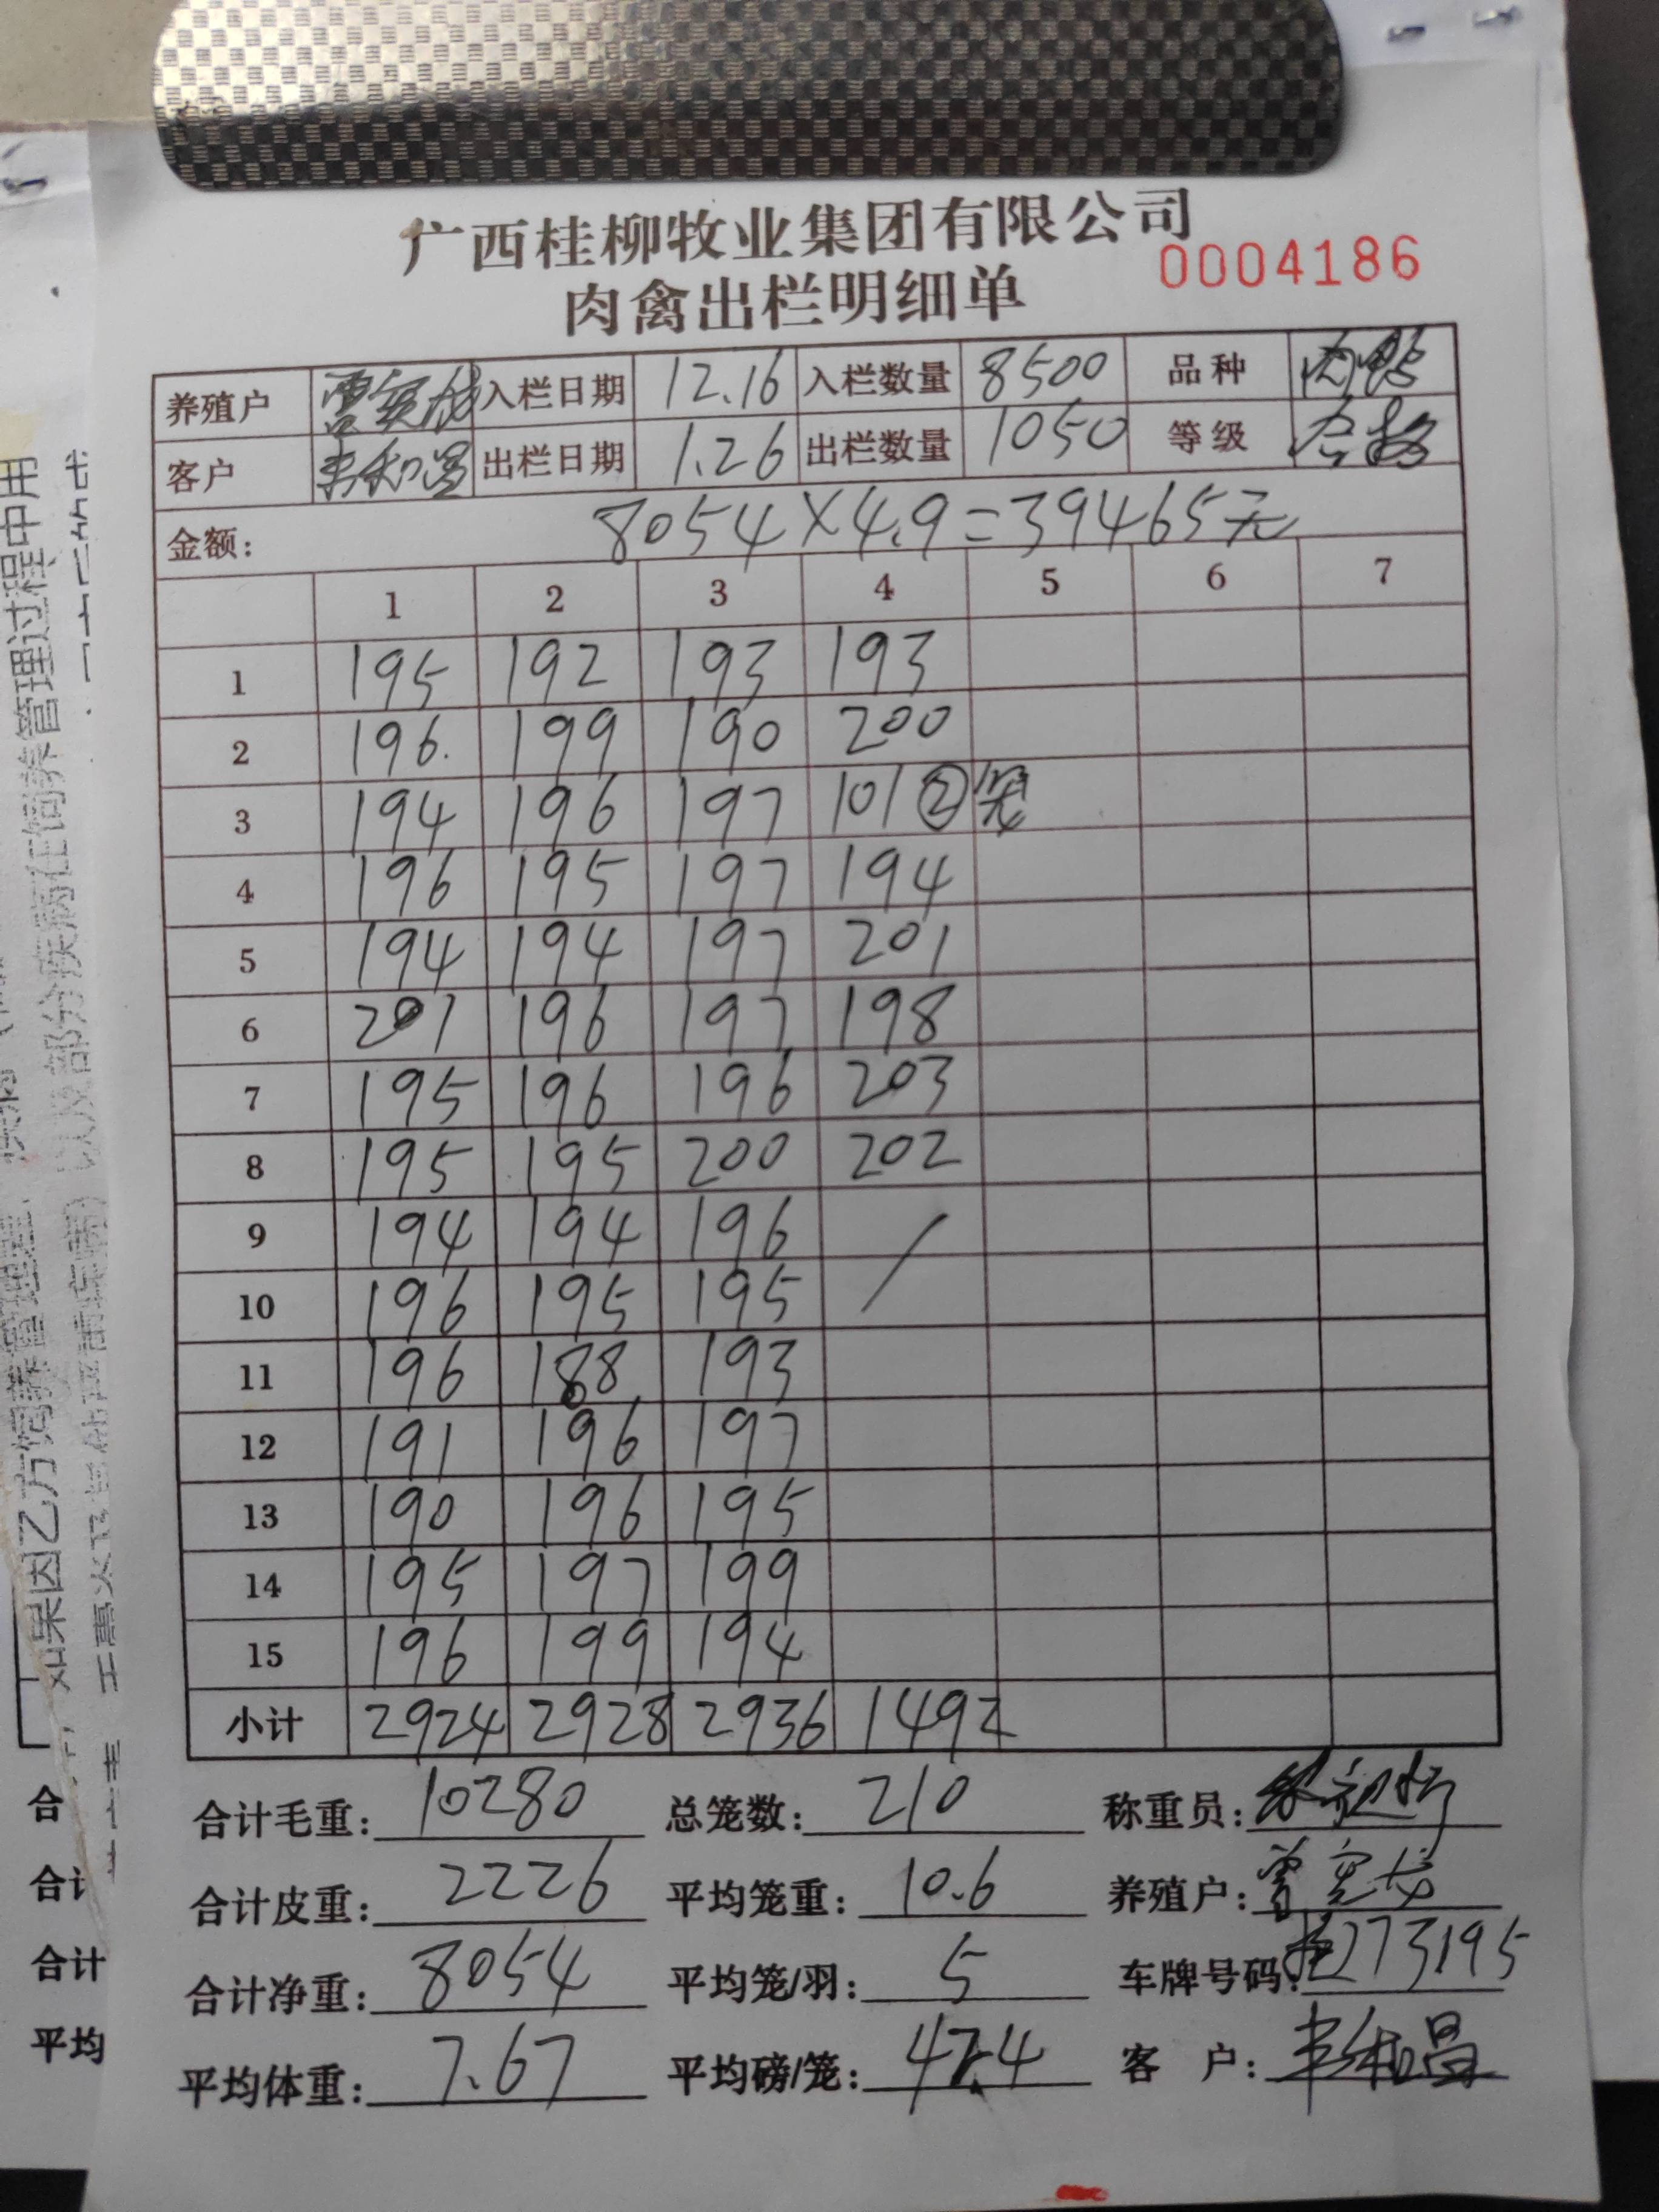 广西桂柳牧业集团有限公司
0004186
肉禽出栏明细单
养殖户 入栏日期 12.16 入栏数量 8500 品种 肉鸭
客户 丰和昌 出栏日期 1.26 出栏数量 1050 等级 合格
金额: 8054×4.9=39465元
1 2 3 4 5 6 7
1 195 192 193 193
2 196. 199 190 200
3 194 196 197 101 ② 笼
4 196 195 197 194
5 194 194 197 201
6 201 196 197 198
7 195 196 196 203
8 195 195 200 202
9 194 194 196 /
10 196 195 195
11 196 188 193
12 191 196 197
13 190 196 195
14 195 197 199
15 196 199 194
小计 2924 2928 2936 1492
合计毛重: 10280 总笼数: 210 称重员:
合计皮重: 2226 平均笼重: 10.6 养殖户:
合计净重: 8054 平均笼/羽: 5 车牌号码: 273195
平均体重: 7.67 平均磅/笼: 47.4 客 户: 丰和昌
如果因乙方饲养管理
部分疾病在饲养管理过程中用
合
合计
合计
平均